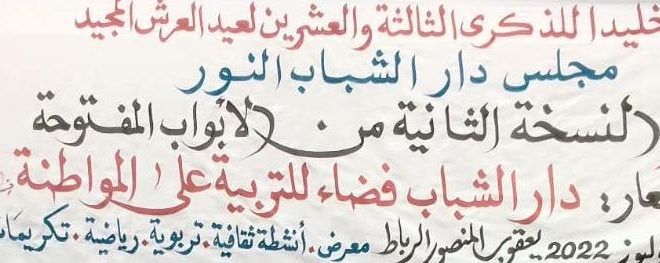 خليدا للذكرى الثالثة والعشرين لعيد العرش المجيد
مجلس دار الشباب النور
النسخة الثانية من الأبواب المفتوحة
عار: دار الشباب فضاء للتربية على المواطنة
2022 يعقوب المنصور الرباط معرض. أنشطة ثقافية. تربوية. رياضية. تكريمات